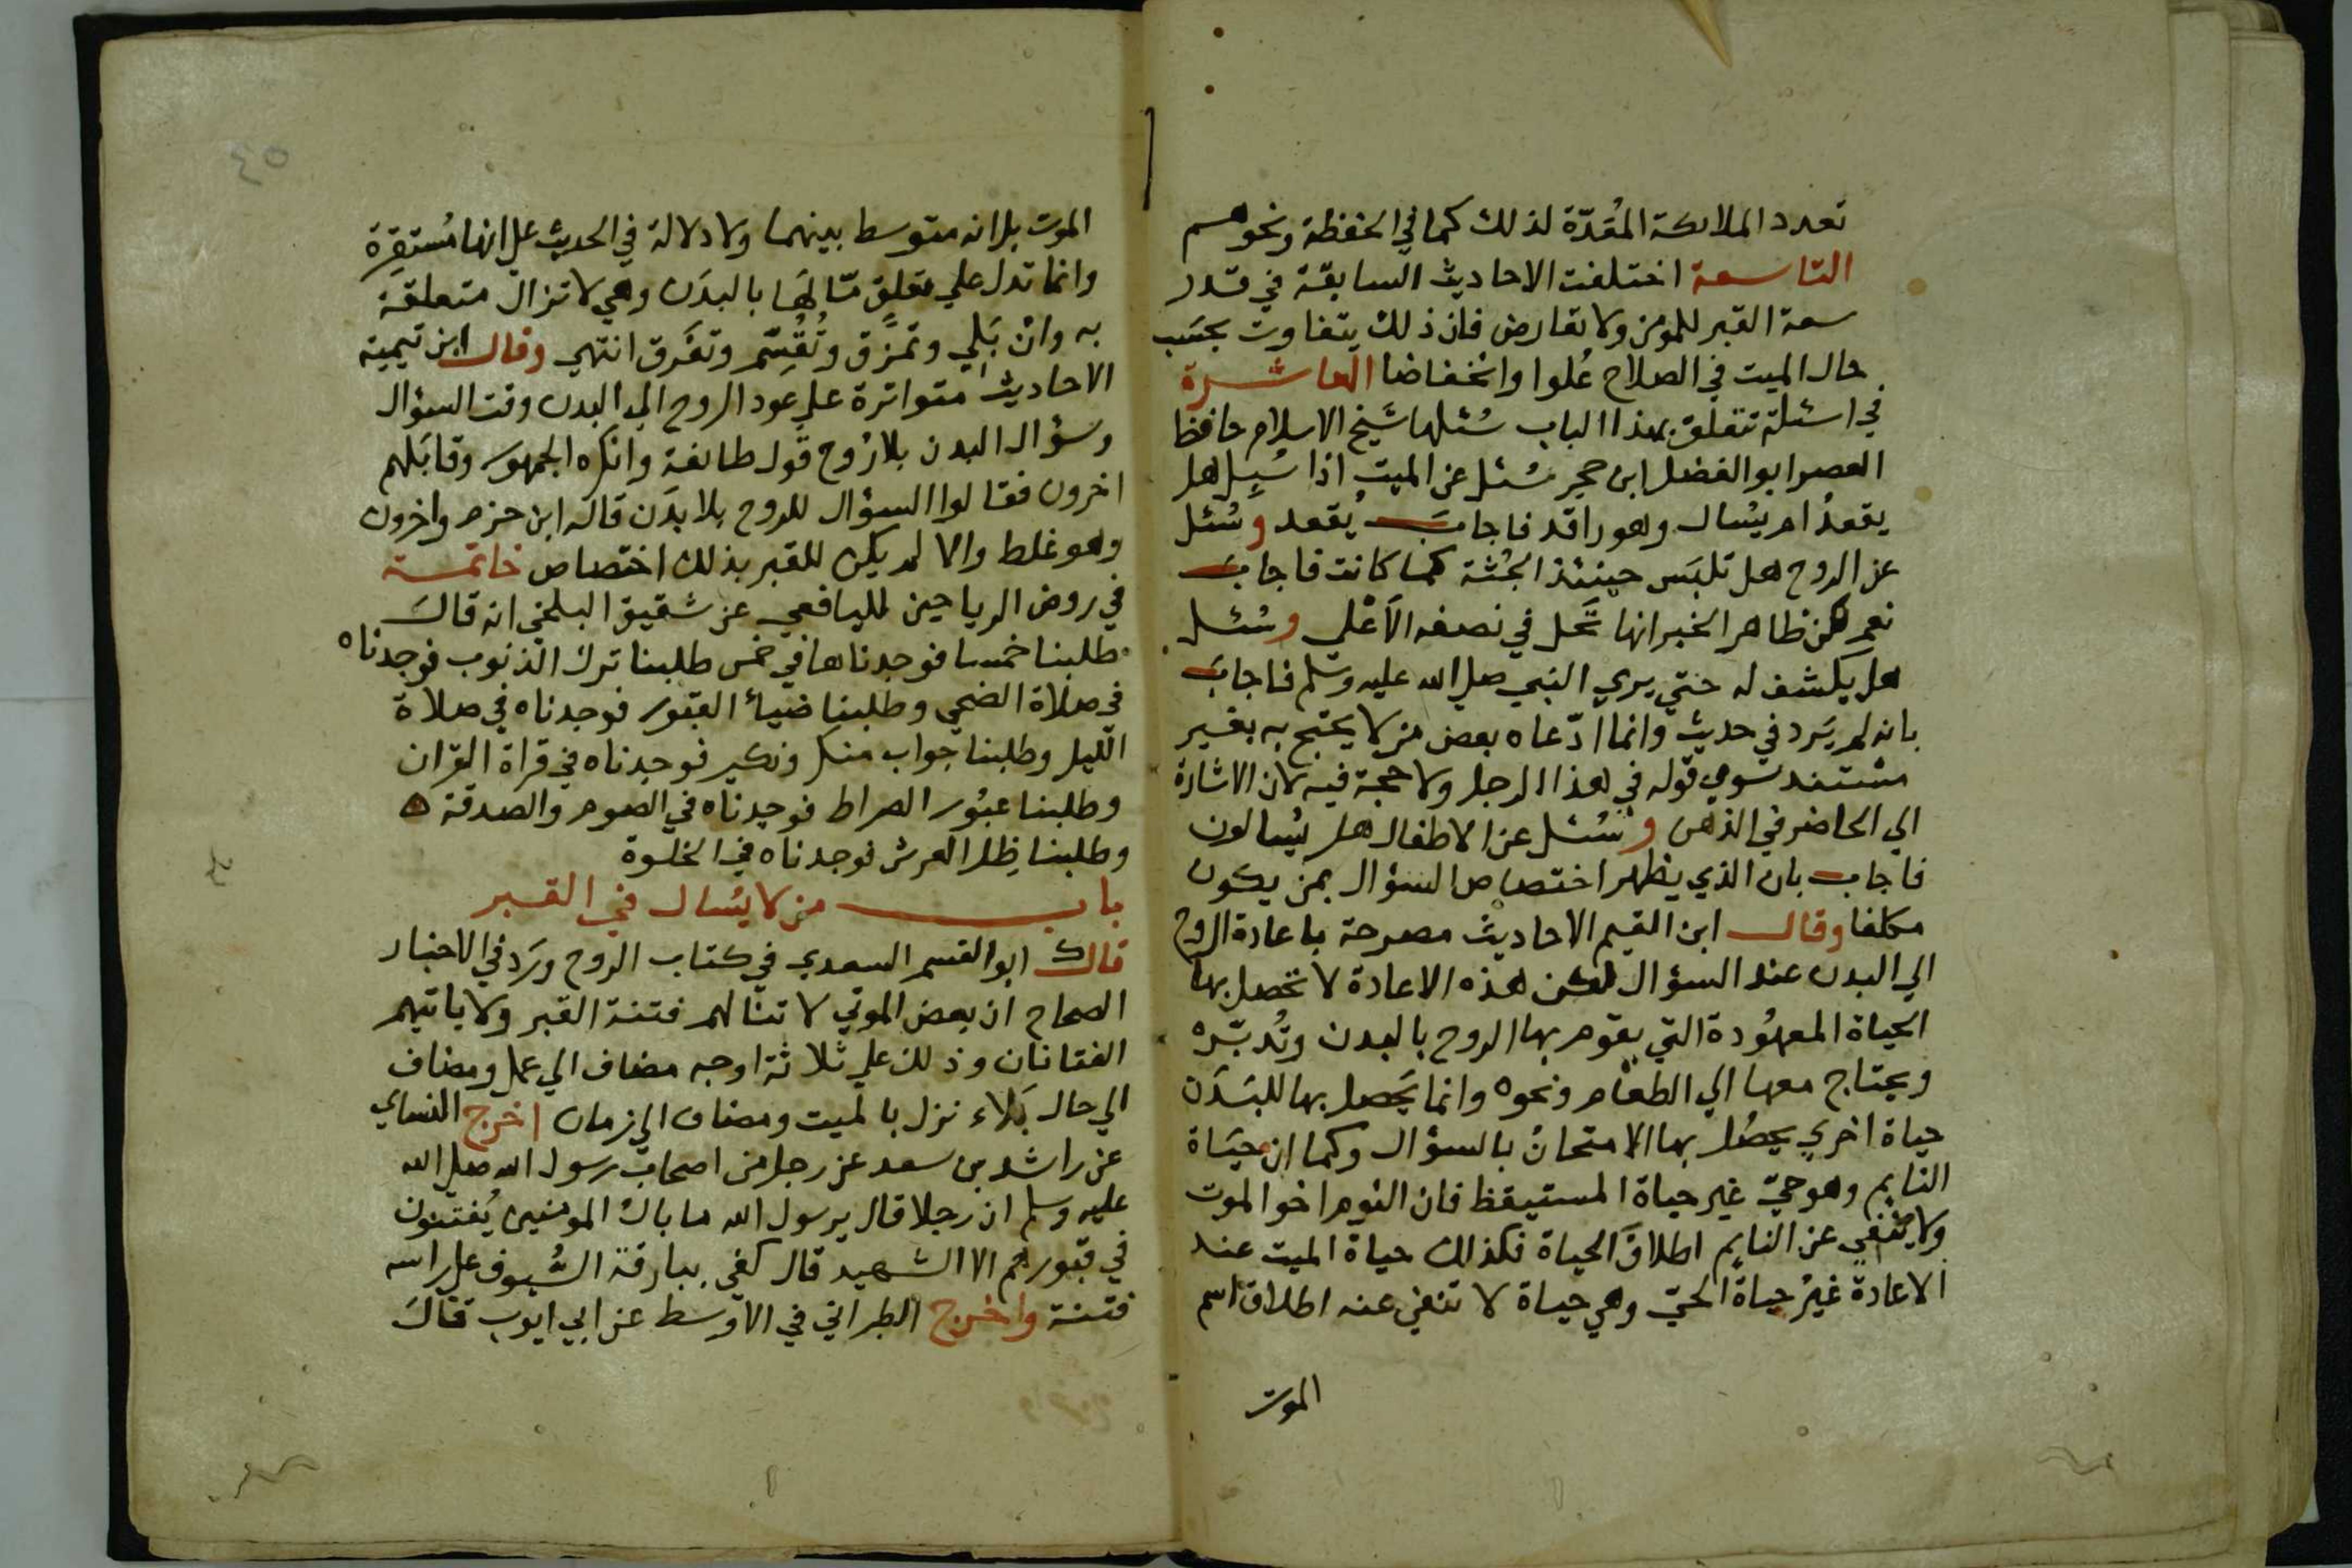 تعدد الملائكة المُعَدّة لذلك كما في الحفظة ونحوهم
التاسعة اختلفت الاحاديث السابقة في قدر
سعة القبر للمومن ولا تعارض فان ذلك يتفاوت بحَسَب
حال الميت في الصلاح عُلوا وانخفاضا العاشرة
في اسئلة تتعلق بهذا الباب سُئلها شيخ الاسلام حافظ
العصر ابو الفضل ابن حجر سُئل عن الميت اذا سُيِل هل
يقعدُ ام يسُال وهو راقد فاجابَ يُقعد وسُئل
عن الروح هل تلبَس حينئذ الجُثة كما كانت فاجاب
نعم لكن ظاهر الخبر انها تَحل في نصفه الاَعْلي وسُئل
هل يكشف له حتي يري النبي صلي الله عليه وسلم فاجابَ
بانه لم يَرد في حديث وانما ادّعاه بعض من لا يحتج به بغير
مستند سوي قوله في هذا الرجل ولا حجة فيه لان الاشارة
الي الحاضر في الذهن وسُئل عن الاطفال هل يسُالون
فاجاب بان الذي يظهر اختصاص السؤال بمن يكون
مكلفا وقال ابن القيم الاحاديث مصرحة باعادة الروح
الي البدن عند السؤال لكن هذه الاعادة لا تحصل بها
الحياة المعهُودة التي يقوم بها الروح بالبدن وتُدبّره
ويحتاج معها الي الطعام ونحوه وانما يَحصل بها للبَدَن
حياة اخري يحصُل بها الامتحانُ بالسؤال وكما ان حيَاة
النايم وهو حيّ غير حياة المستيقظ فان النوم اخو الموت
ولا ينفي عن النايم اطلاقَ الحياة فكذلك حياة الميت عند
الاعادة غيرُ حياة الحيّ وهي حياة لا تنفي عنه اطلاق اسم
الموت
٤٥
الموت بل انه متوسط بينهما ولا دلالة في الحديث علي انها مُستقِرة
وانما تدل علي تعلقٍ مّا لهَا بالبدَن وهي لا تزال متعلقَة
به وان بَلي وتمزَّق وتُقُسِّم وتفَرق انتهي وقال ابن تيمية
الاحاديث متواترة علي عَود الروح الي البدن وقت السؤال
وسؤال البدن بلا رُوح قول طائفة وانكره الجمهور وقابَلهم
اخرون فقالوا السؤال للروح بلا بدَن قاله ابن حزم واخرون
وهو غلط والا لم يكن للقبر بذلك اختصاص خاتمة
في روض الرياحين لليافعي عن شقيق البلخي انه قالَ
طلبنا خمسا فوجدناها في خمس طلبنا ترك الذنوب فوجدناه
في صلاة الضحي وطلبنا ضيأ القبور فوجدناه في صلاة
الليل وطلبنا جواب منكر ونكير فوجدناه في قراة القران
وطلبنا عبُور الصراط فوجدناه في الصوم والصدقة
وطلبنا ظِل العرش فوجدناه في الخلوة
باب من لا يسُال في القبر
قال ابو القسم السعدي في كتاب الروح ورَد في الاخبار
الصحاح ان بعض الموتي لا تنالهم فتنة القبر ولا ياتيهم
الفتانان وذلك علي ثلاثة اوجه مضاف الي عمل ومضاف
الي حال بَلاء نزل بالميت ومضاف الي زمان اخرج النساي
عن راشد بن سعد عن رجل من اصحاب رسول الله صلي الله
عليه وسلم ان رجلا قال يرسول الله ما بالُ المومنين يُفتنون
في قبورهم الا الشهيد قال كفي ببارقة السُيوف علي راسه
فتنة واخرج الطبراني في الاوسط عن ابي ايوب قالَ